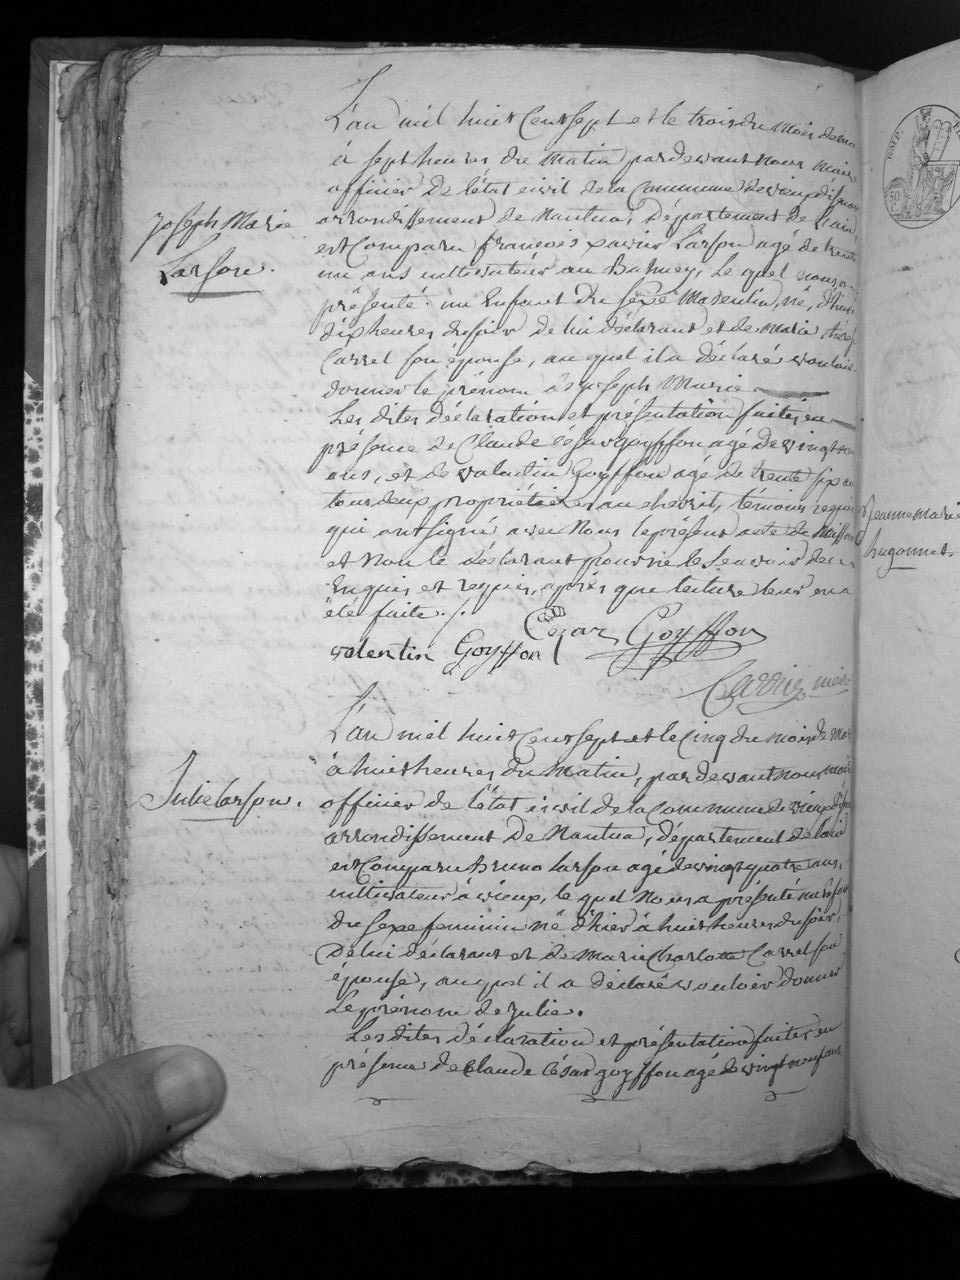 L'an mil huit Cent sept et le trois du mois de
à sept heures du matin pardevant nous maire
officier de l'état civil de la Commune de vieu d'isenave
Joseph Marie
Larson.
arrondissement de Nantua, Département de l'ain
est Comparu françois xavier Larson agé de trente
un ans cultivateur au Balmey, le quel nous a
présenté un Enfant du sexe Masculin, né, d'hier
dix heures du soir de lui déclarant et de Marie
Carrel son épouse, au quel il a déclaré vouloir
donner le prénom de joseph Marie
Les dites déclaration et présentation faites en
présence de Claude César goyffon agé de vingt neuf
ans, et de valentin Goyffon agé de trente six ans
tous deux propriétaires au chevril, témoins requis
qui ont signé avec Nous le présent acte de Naissance
et Non le déclarant pour ne le savoir de ce
Enquis et requis, après que lecture leur en a
été faite ./.
Cézar Goyffon
valentin Goyffon
maire
L'an mil huit Cent sept et le Cinq du mois de
à huit heures du Matin, pardevant nous maire
Julie larson.
officier de l'état civil de la Commune de vieu d'isenave
arrondissement de Nantua, département de l'ain
est Comparu Bruno larson agé de vingt quatre ans,
cultivateur à vieux, le quel Nous a présenté un Enfant
du sexe feminin né d'hier à huit heures du soir,
De lui déclarant et de Marie Charlotte Carrel son
épouse, au quel il a déclaré vouloir donner
Le prénom de Julie.
Les dites déclaration et présentation faites en
présence de Claude César goyffon agé de vingt neuf ans,
EMP.
50
Jeanne Marie
hugonnet